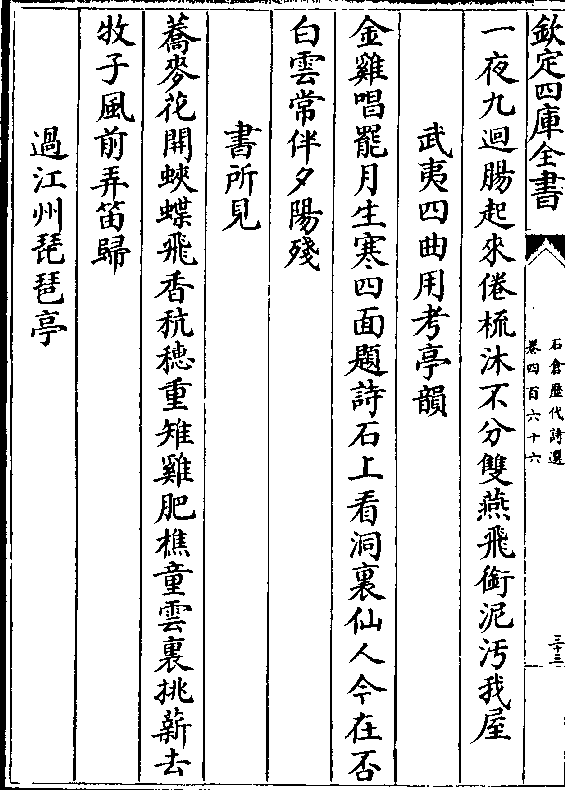 欽定四庫全書
石倉歴代詩選
卷四百六十六
三十三
一夜九迴腸起來倦梳沐不分雙燕飛銜泥汚我屋
武夷四曲用考亭韻
金雞唱罷月生寒四面題詩石上看洞裏仙人今在否
白雲常伴夕陽殘
書所見
蕎麥花開蛺蝶飛香秔穗重雉雞肥樵童雲裏挑薪去
牧子風前弄笛歸
過江州琵琶亭